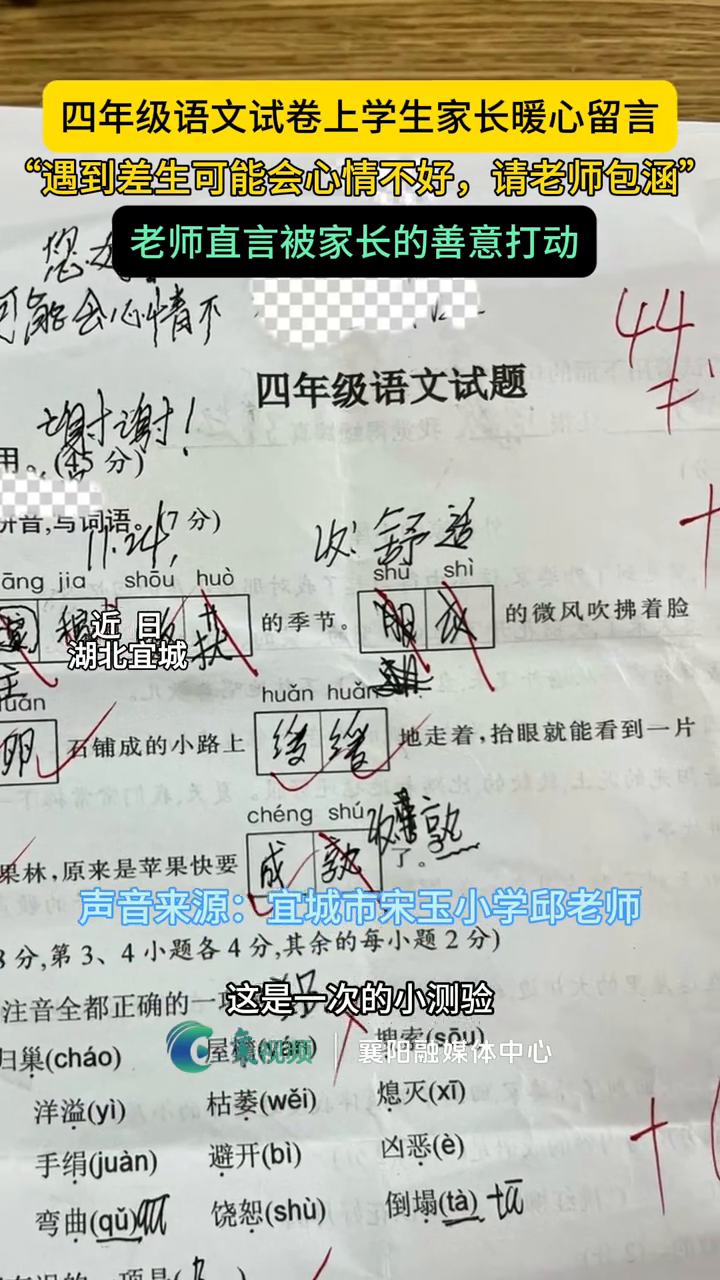 四年级语文试卷上学生家长暖心留言
“遇到差生可能会心情不好，请老师包涵”
老师直言被家长的善意打动
您
可能会心情不
44
四年级语文试题
谢谢！
用。(45分)
拼音,写词语。(7分)
11.24,
改：舒适
āng jia shōu huò
shū shì
的季节。
的微风吹拂着脸
近日
湖北宜城
luǎn
huǎn huǎn
卵
石铺成的小路上
地走着,抬眼就能看到一片
chéng shú
改熟
果林,原来是苹果快要
成
了。
声音来源：宜城市宋玉小学邱老师
8分,第3、4小题各4分,其余的每小题2分)
注音全都正确的一项
这是一次的小测验
归巢(cháo)
屋檐(yán)
搜索(sōu)
视频
襄阳融媒体中心
洋溢(yì)
枯萎(wěi)
熄灭(xī)
手绢(juàn)
避开(bì)
凶恶(è)
弯曲(qǔ)
饶恕(shù)
倒塌(tà) tā
一项是(